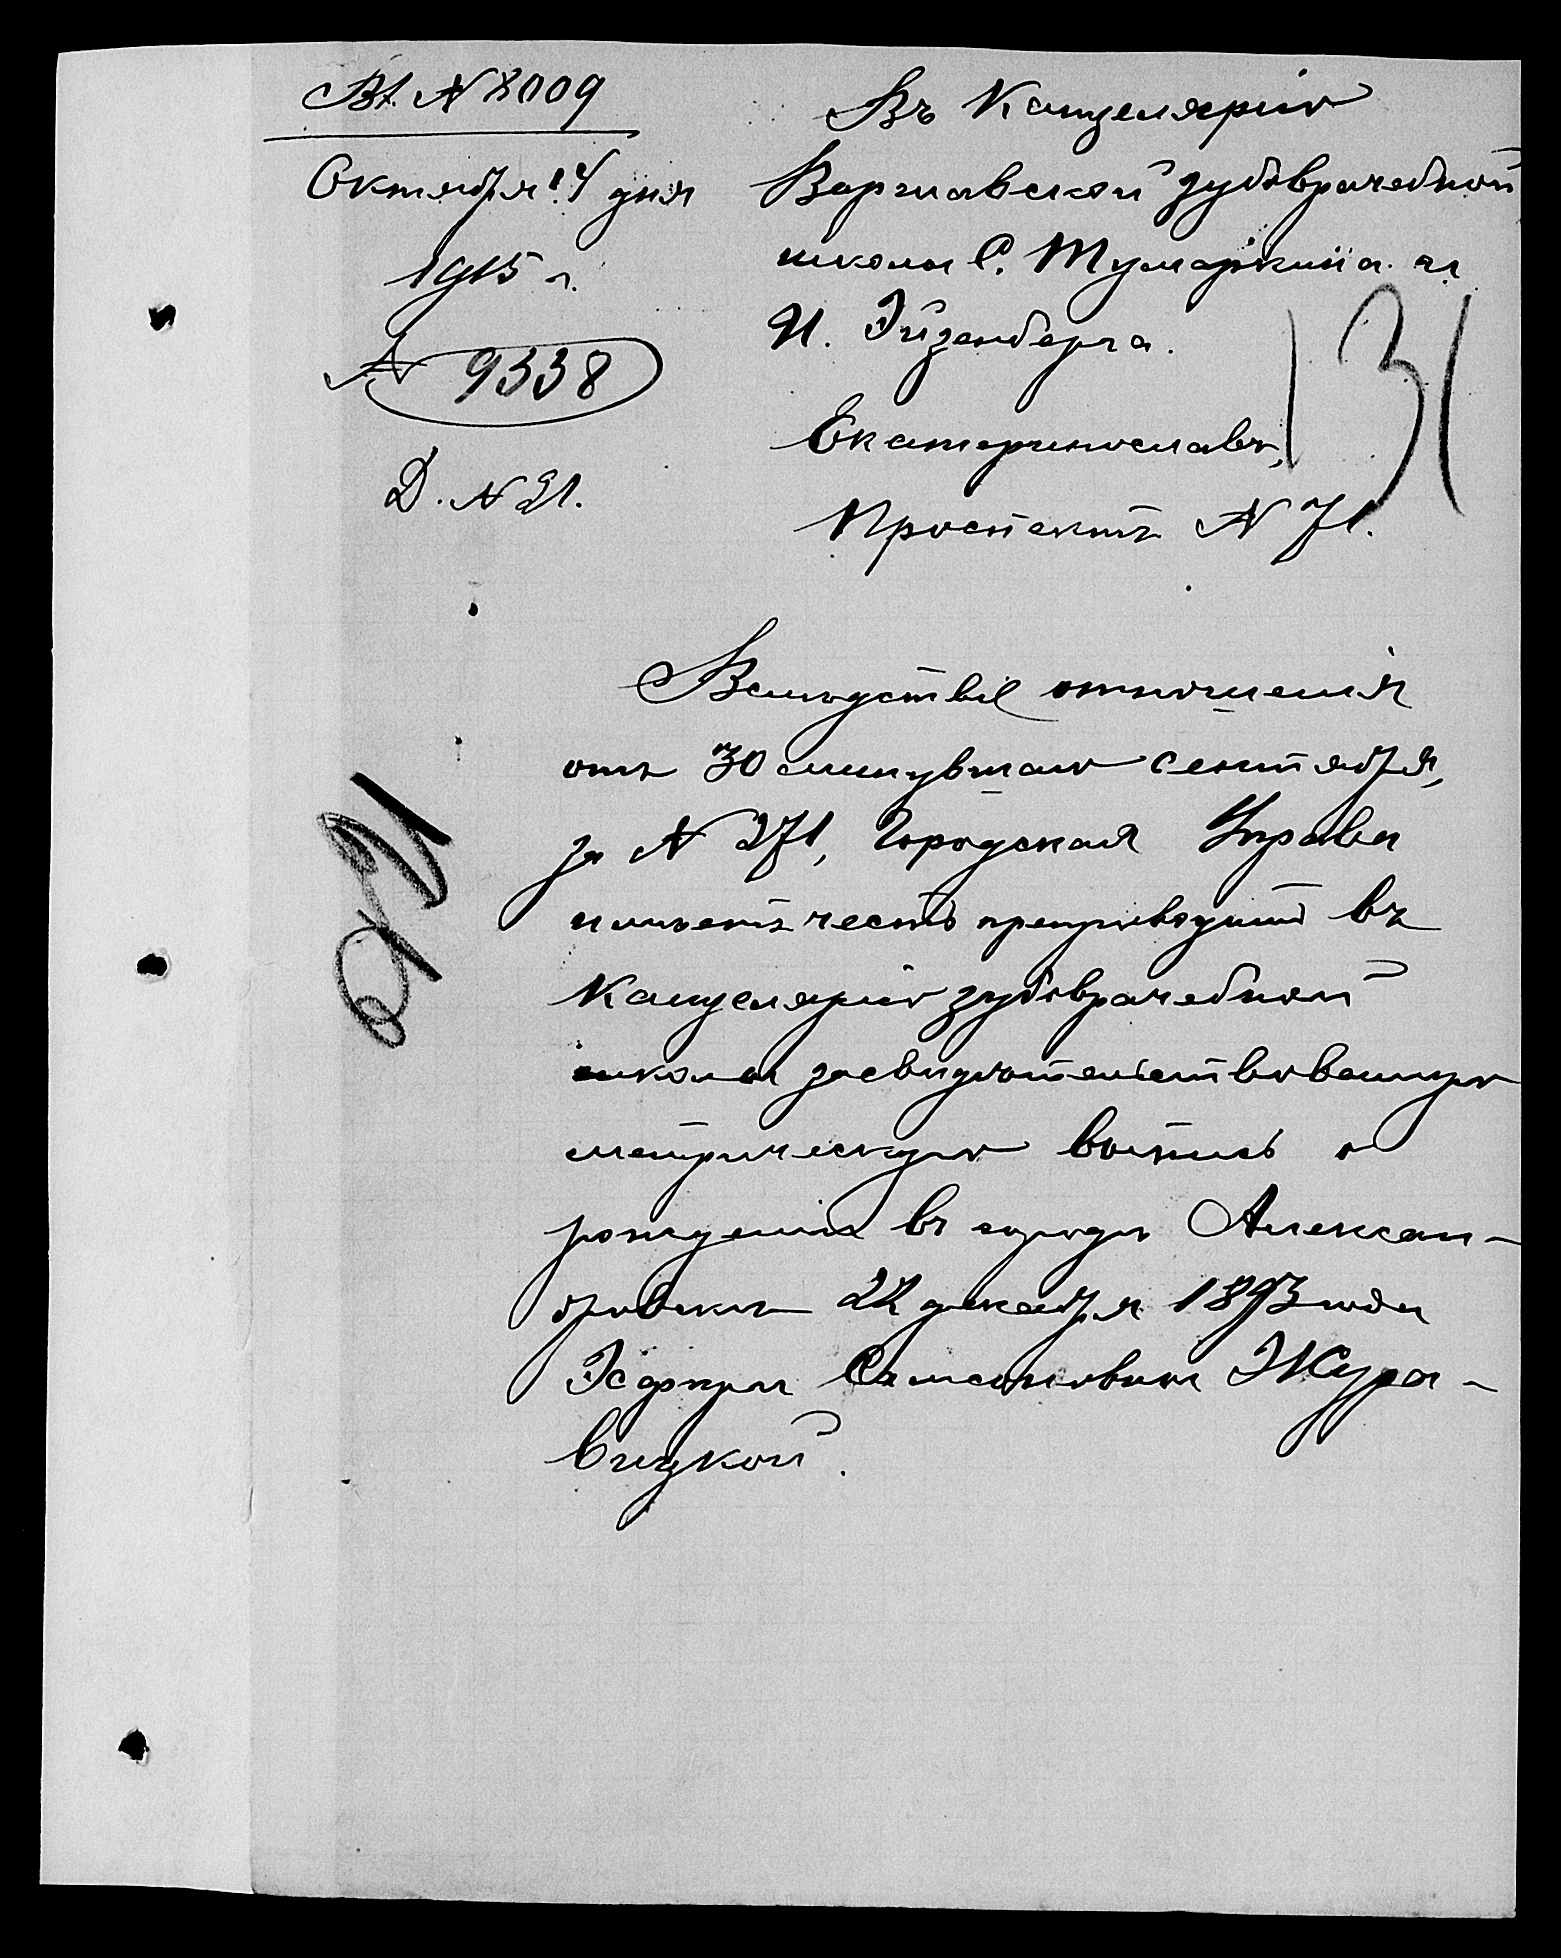 Вх. № 8009
Октября 14 дня
1915 г.
№ 9338
Д. № 21.
Въ Канцелярію
Варшавской зубоврачебной
школы С. Тумаркина и
И. Эйзенберга.
Екатеринославъ,
Проспектъ № 71.
131
Вслѣдствіе отношенія
отъ 30 минувшаго сентября,
за № 271, Городская Управа
имѣетъ честь препроводить въ
Канцелярію зубоврачебной
школы засвидѣтельствованную
метрическую выпись о
рожденіи въ городѣ Алексан-
дровскѣ 22 декабря 1893 года
Эсфири Самсоновны Жура-
вицкой.